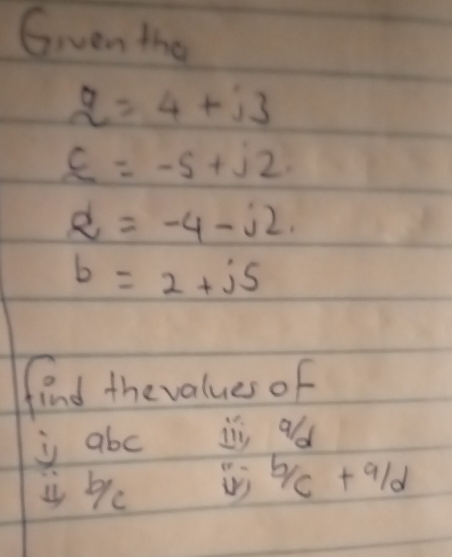 Given tha
a = 4 + j3
c = -5 + j2.
d = -4 - j2.
b = 2 + j5
find the values of
i) abc iii) a/d
ii) b/c iv) b/c + a/d